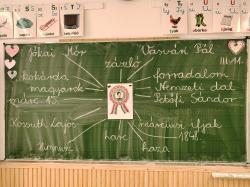 Jókai Mór
Vasvári Pál
zászló
III. 11.
kokárda
forradalom
magyarok
Nemzeti dal
márc. 15.
Petőfi Sándor
Kossuth Lajos
márciusi ifjak
harc
1848.
himnusz
haza